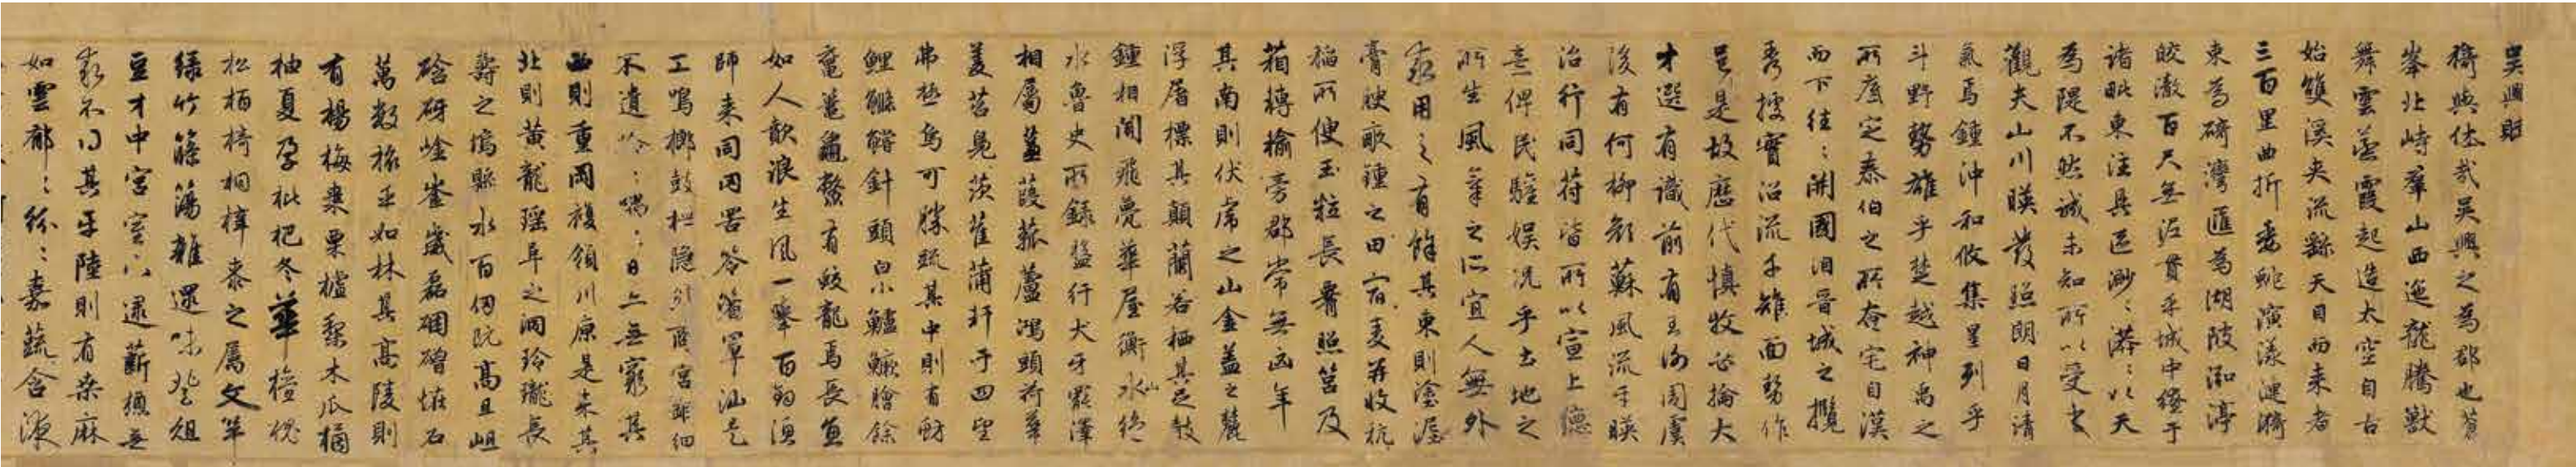 吳興賦
猗與偉哉吳興之為郡也蒼
峯北峙羣山西迤龍騰獸
舞雲蒸霞起造太空自古
始雙溪夾流繇天目而來者
三百里曲折委蛇演漾漣漪
東為碕灣匯為湖陂泓渟
皎澈百尺無泥貫乎城中繚于
諸毗東注具區渺〻漭〻以天
為隄不然誠未知所以受之
觀夫山川暎發照朗日月清
氣焉鍾沖和攸集星列乎
斗野勢雄乎楚越神禹之
所底定泰伯之所奄宅自漢
而下往〻開國洎晉城之攬
秀據實沿流千雉面勢作
邑是故歷代慎牧必掄大
才選有識前有王謝周虞
後有何柳顏蘇風流乎暎
治行同符皆所以宣上德
意俾民驩娛況乎土地之
所生風氣之所宜人無外
求用之有餘其東則塗泥
膏腴畝鍾之田宿麥再收秔
稻所便玉粒長霄照筥及
箱轉輸旁郡常無凶年
其南則伏虎之山金蓋之麓
浮屠標其顛蘭若栖其足鼓
鍾相聞飛甍華屋衡山水絕
水魯史所錄盤行犬牙罷澤
相屬蓋葭菰蘆鴻頭荷華
菱苕鳧茨萑蒲軒于四望
弗極烏可勝疏其中則有魴
鯉鰷鱨針頭白小鱸鱖膾餘
黿鼉龜鱉有鮫龍焉長魚
如人歕浪生風一舉百鈞漁
師來同罔罟笭箵罩汕是
工鳴榔鼓枻隱然商宮鉅細
不遺噞〻喁〻日亦無窮其
西則重岡複領川原是來其
北則黃龍瑤阜之洞玲瓏長
壽之塢縣水百仞阬高且岨
硿砑崯崟嵗磊硱磳崔石
萬數旅乎如林其高陵則
有楊梅棗栗樝梨木瓜橘
柚夏孕枇杷冬華檀槐
松柏椅桐梓桼之屬文竿
綠竹篠簜雜遝味登俎
豆才中宮室下逮薪槱無
求不得其平陸則有桑麻
如雲郁〻紛〻嘉蔬含液